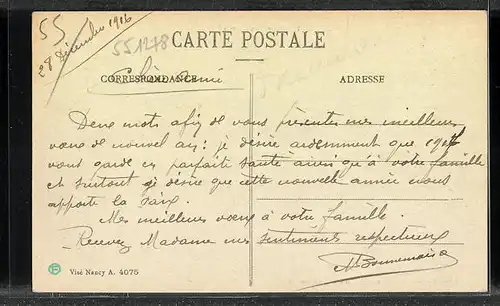 55
28 Décembre 1916
551248
CARTE POSTALE
CORRESPONDANCE
ADRESSE
Chère amie
Deux mots afin de vous présenter mes meilleurs
vœux de nouvel an; je désire ardemment que 1917
vous garde en parfaite santé ainsi qu'à votre famille
et surtout je désire que cette nouvelle année nous
apporte la Paix.
Mes meilleurs vœux à votre famille.
Recevez Madame mes sentiments respectueux
Visé Nancy A. 4075